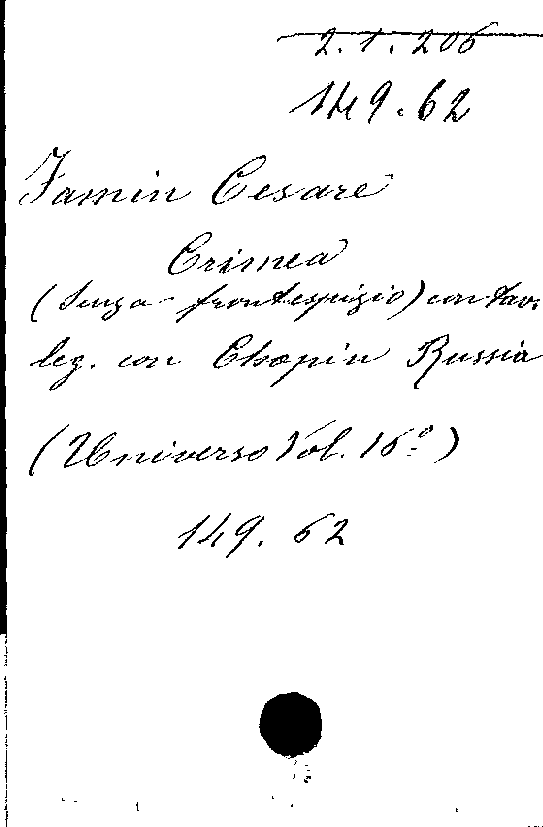 2.1.206
149.62
Famin Cesare
Crimea
(Senza frontespizio) con tav.
leg. con Chopin Russia
(Universo Vol. 16º)
149.62